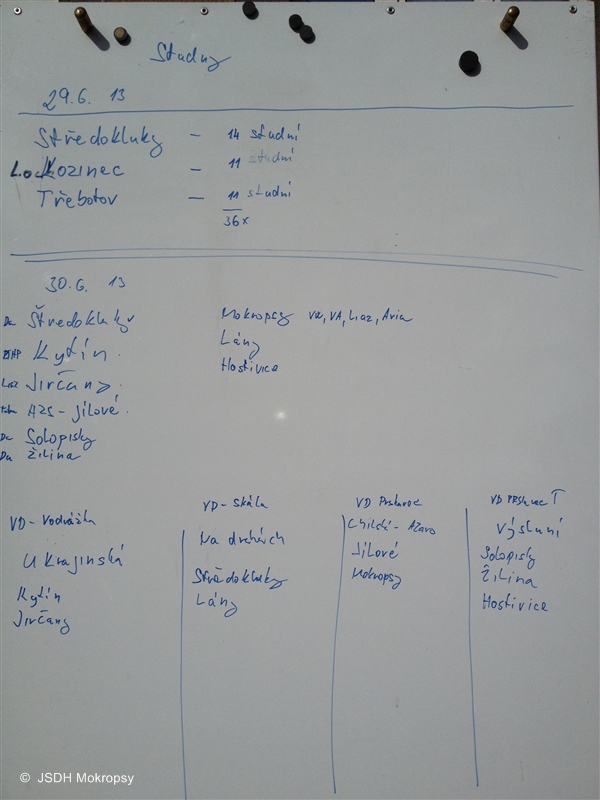 Studny
29.6. 13
Středokluky – 14 studní
Kozinec – 11 studní
Třebotov – 11 studní
36x
30.6. 13
Da Středokluky
Kytín
Liaz Jirčany
AZS - Jílové
Da Solopisky
Da Žilina
Mokropsy VW, VA, Liaz, Avia
Lány
Hostivice
VD - Vodrážka
Ukrajinská
Kytín
Jirčany
VD - Skála
Na drahách
Středokluky
Lány
VD
Jílové
Mokropsy
VD
Výsluní
Solopisky
Žilina
Hostivice
© JSDH Mokropsy